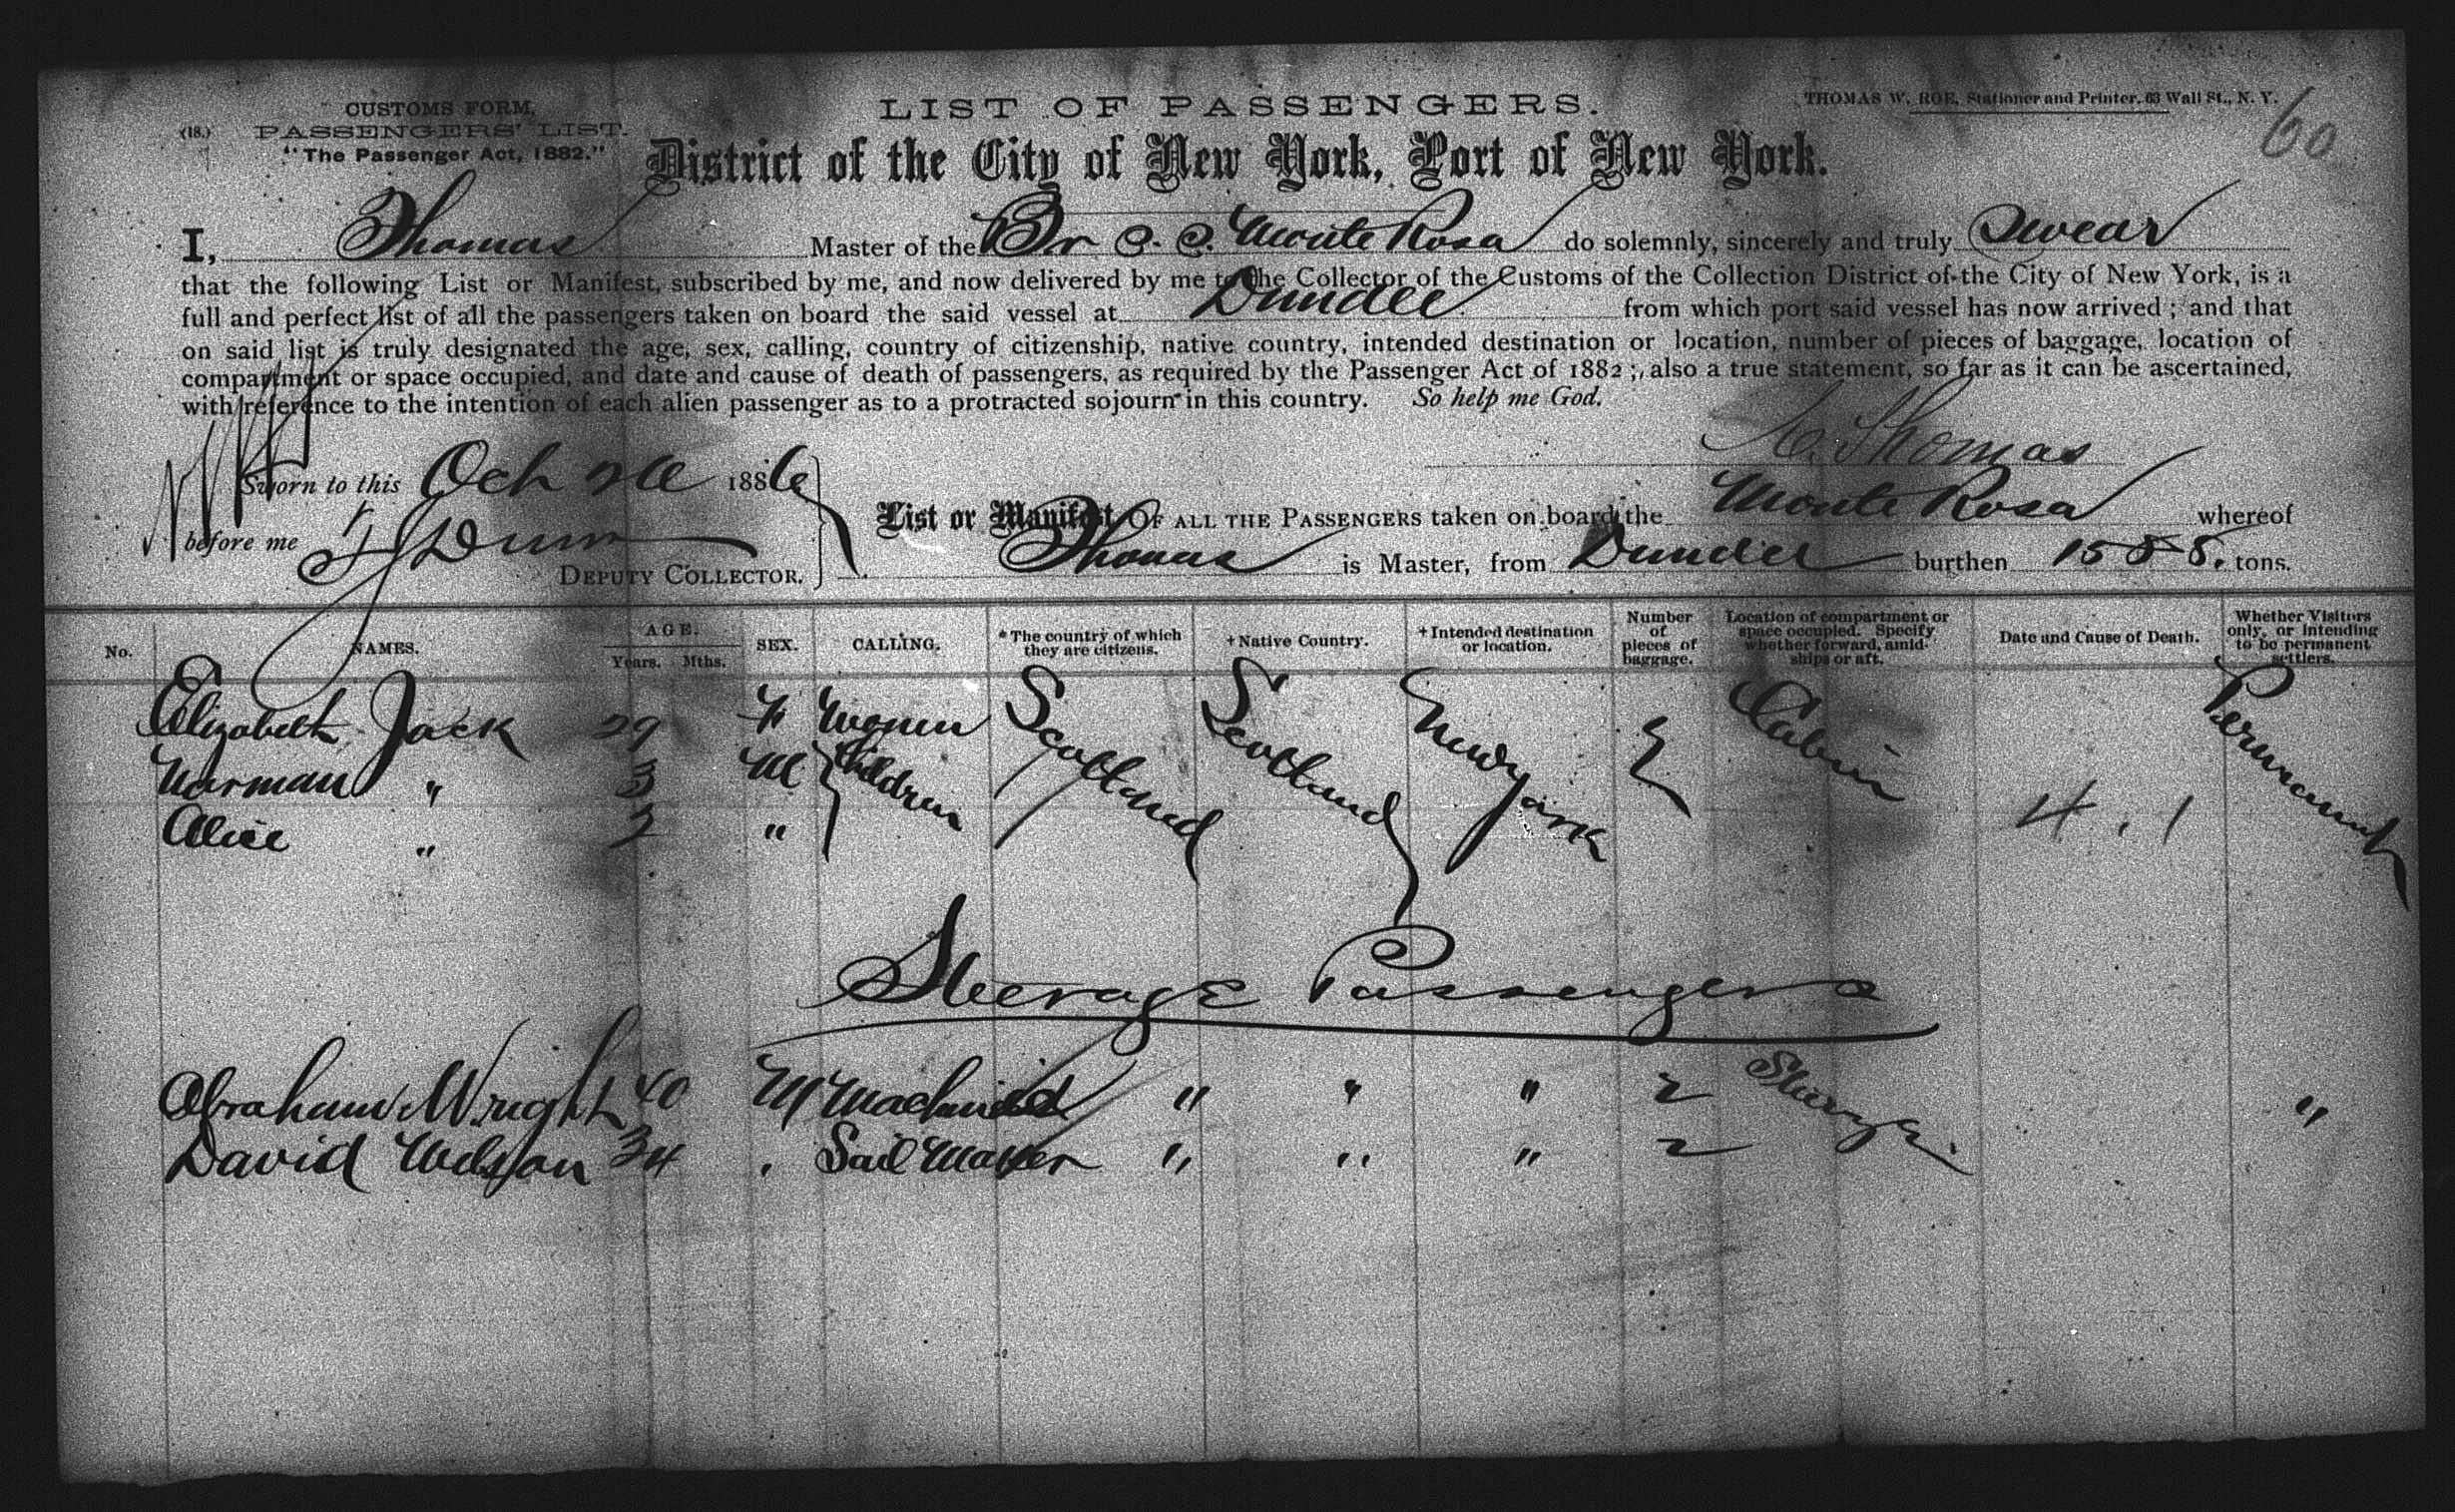 (18.)
CUSTOMS FORM,
PASSENGERS' LIST.
"The Passenger Act, 1882."
LIST OF PASSENGERS.
THOMAS W. ROE, Stationer and Printer, 63 Wall St., N. Y.
60
District of the City of New York, Port of New York.
I, Thomas Master of the Br S.S. Monte Rosa do solemnly, sincerely and truly Swear
that the following List or Manifest, subscribed by me, and now delivered by me to the Collector of the Customs of the Collection District of the City of New York, is a
full and perfect list of all the passengers taken on board the said vessel at Dundee from which port said vessel has now arrived; and that
on said list is truly designated the age, sex, calling, country of citizenship, native country, intended destination or location, number of pieces of baggage, location of
compartment or space occupied, and date and cause of death of passengers, as required by the Passenger Act of 1882; also a true statement, so far as it can be ascertained,
with reference to the intention of each alien passenger as to a protracted sojourn in this country. So help me God.
Thomas
Sworn to this Oct 1886
before me Dunn
DEPUTY COLLECTOR.
List or Manifest OF ALL THE PASSENGERS taken on board the Monte Rosa whereof
Thomas is Master, from Dundee burthen tons.
No. NAMES. AGE. Years. Mths. SEX. CALLING. *The country of which they are citizens. +Native Country. +Intended destination or location. Number of pieces of baggage. Location of compartment or space occupied. Specify whether forward, amidships or aft. Date and Cause of Death. Whether Visitors only, or intending to be permanent settlers.
Elizabeth Jack 29 F Women Scotland Scotland New York Cabin Permanent
Norman " 3 M Children
Alice " "
4.1
Steerage Passengers
Abraham Wright 40 M Machinist " " " 2 Steerage "
David Wilson 34 Sail Maker " " " 2